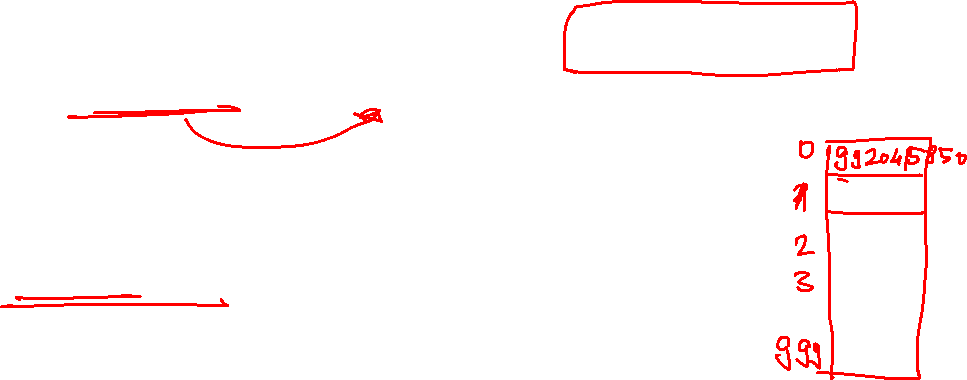 0 992045850
1
2
3
999